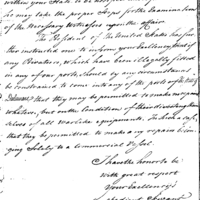 within your State to be
he may take the proper Steps for the Examination
of the necessary Witnesses upon the Affair
The President of the United States has far
ther instructed me to inform your Excellency, that if
any Privateers, which have been illegally fitted
in any of our ports, should by any circumstances
be constrained to come into any of the ports of
Delaware, that they may be permitted to make no repairs
whatever, but on the condition of their divesting them
selves of all warlike equipments. In such a case,
that they be permitted to make any repairs belon
ging solely to a commercial Vessel.
I have the honor to be
with great respect
your Excellency's
obedient Servant